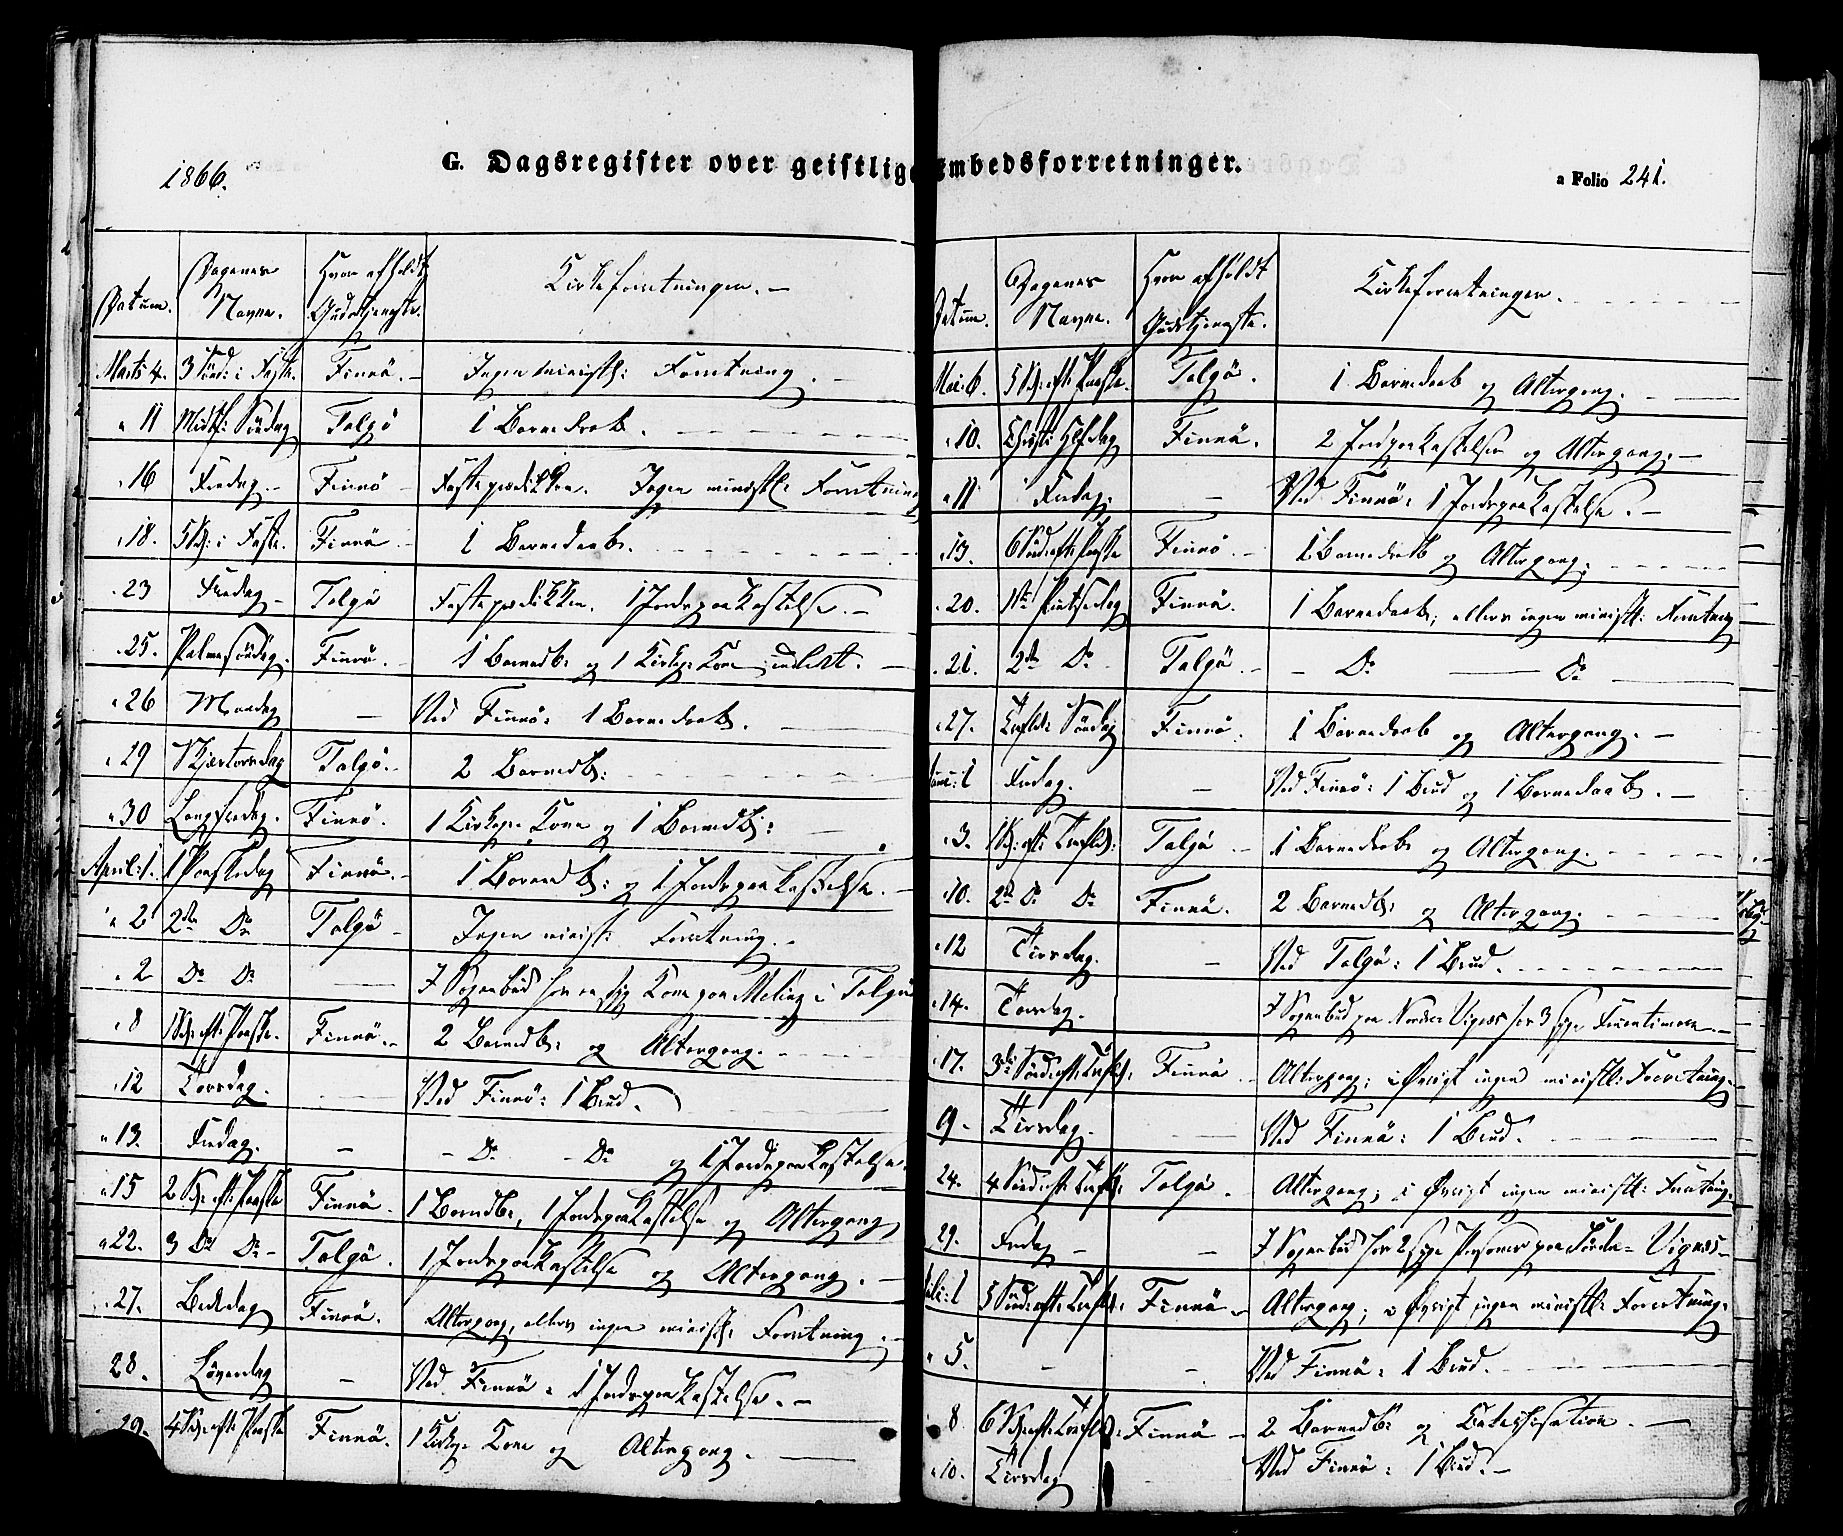 1866.
G. Dagsregister over geistlige Embedsforretninger.
a Folio 241.
Datum. Dagenes Navne. Hvor afholdt Gudstjeneste. Kirkeforretningen. —
Marts 4. 3 Sønd: i Faste. Finnö. — Ingen ministl: Forretning. —
" 11 Midtf: Söndag Talgö 1 Barnedaab. — — —
" 16 Fredag. — Finnö — Fasteprædikken. Ingen ministl: Forretning
" 18. 5 S: i Faste. Finnö — 1 Barnedaab. — — —
" 23 Fredag — Talgö Fasteprædikken. 1 Jordspaakastelse. —
" 25. Palmesöndag. Finnö. — 1 Barnedb: og 1 Kirkeg: Kone indledt. —
" 26 Mandag — Ved Finnö: 1 Barnedaab. —
" 29 Skjærtorsdag Talgö. — 2 Barnedb: — — —
" 30 Langfredag. Finnö. 1 Kirkeg: Kone og 1 Barnedb: —
April: 1. 1 Paaskedag Finnö. — 1 Barnedb: og 1 Jordspaakastelse. —
" 2 2den Do Talgö — Ingen minist: Forretning. —
" 2 Do Do — I Sognebud hos en syg Kone paa Meling i Talgö
" 8 1 S: eft: Paaske. Finnö. — 2 Barnedb: og Altergang. — — —
" 12 Torsdag. — Ved Finnö: 1 Brud. —
" 13. Fredag. — — Do — Do og 1 Jordspaakastelse.
" 15 2 S: eft: Paaske Finnö. 1 Barnedb:, 1 Jordspaakastelse og Altergang
" 22. 3 Do Do — Talgö. 1 Jordspaakastelse og Altergang. —
" 27. Bededag Finnö. Altergang, ellers ingen minist: Forretning. —
28. Löverdag — Ved Finnö: 1 Jordspaakastelse. —
29. 4 S: eft: Paaske Finnö. 1 Kirkeg: Kone og Altergang. —
Datum. Dagenes Navne. Hvor afholdt Gudstjeneste. Kirkeforretningen. — — —
Mai: 6. 5 S: eft: Paaske. Talgö. 1 Barnedaab og Altergang. — —
" 10. Christi Hlfdag Finnö. 2 Jordpaakastelser og Altergang. —
" 11 Fredag. — Ved Finnö: 1 Jordspaakastelse. —
" 13. 6 Sönd: eft: Paaske Finnö. — 1 Barnedaab og Altergang. — — —
" 20. 1ste Pintsedag Finnö. 1 Barnedaab; ellers ingen ministl: Forretning
" 21. 2den Do Talgö. — — Do — Do
" 27. Trefld: Söndag Finnö. 1 Barnedaab og Altergang. —
Juni: 1 Fredag. — Ved Finnö: 1 Brud og 1 Barnedaab. —
" 3. 1 S: eft: Trefld: Talgö — 1 Barnedaab og Altergang. — — —
" 10. 2den Do Do Finnö. 2 Barnedb: og Altergang. — — —
" 12 Tirsdag. — Ved Talgö: 1 Brud. — — —
" 14. Torsdag. I Sognebud paa Nordre Vignæs hos 3 syge Fruentimre. —
" 17. 3die Sönd: eft: Trefld: Finnö — Altergang; i Øvrigt ingen ministl: Forretning. —
19. Tirsdag. — Ved Finnö: 1 Brud. — — —
24. 4 Sönd: eft: Trefld: Talgö. Altergang; i Øvrigt ingen ministl: Forretning.
29. Fredag — — I Sognebud hos 2 syge Personer paa Söndre Vignæs —
Juli: 1 5 Sönd: eft: Trefld: Finnö — Altergang; i Øvrigt ingen ministl: Forretning.
" 5. — — Ved Finnö: 1 Brud. — — —
8. 6 S: eft: Trefld: Finnö — 2 Barnedb: og Catechisation. —
" 10. Tirsdag — Ved Finnö: 1 Brud. —